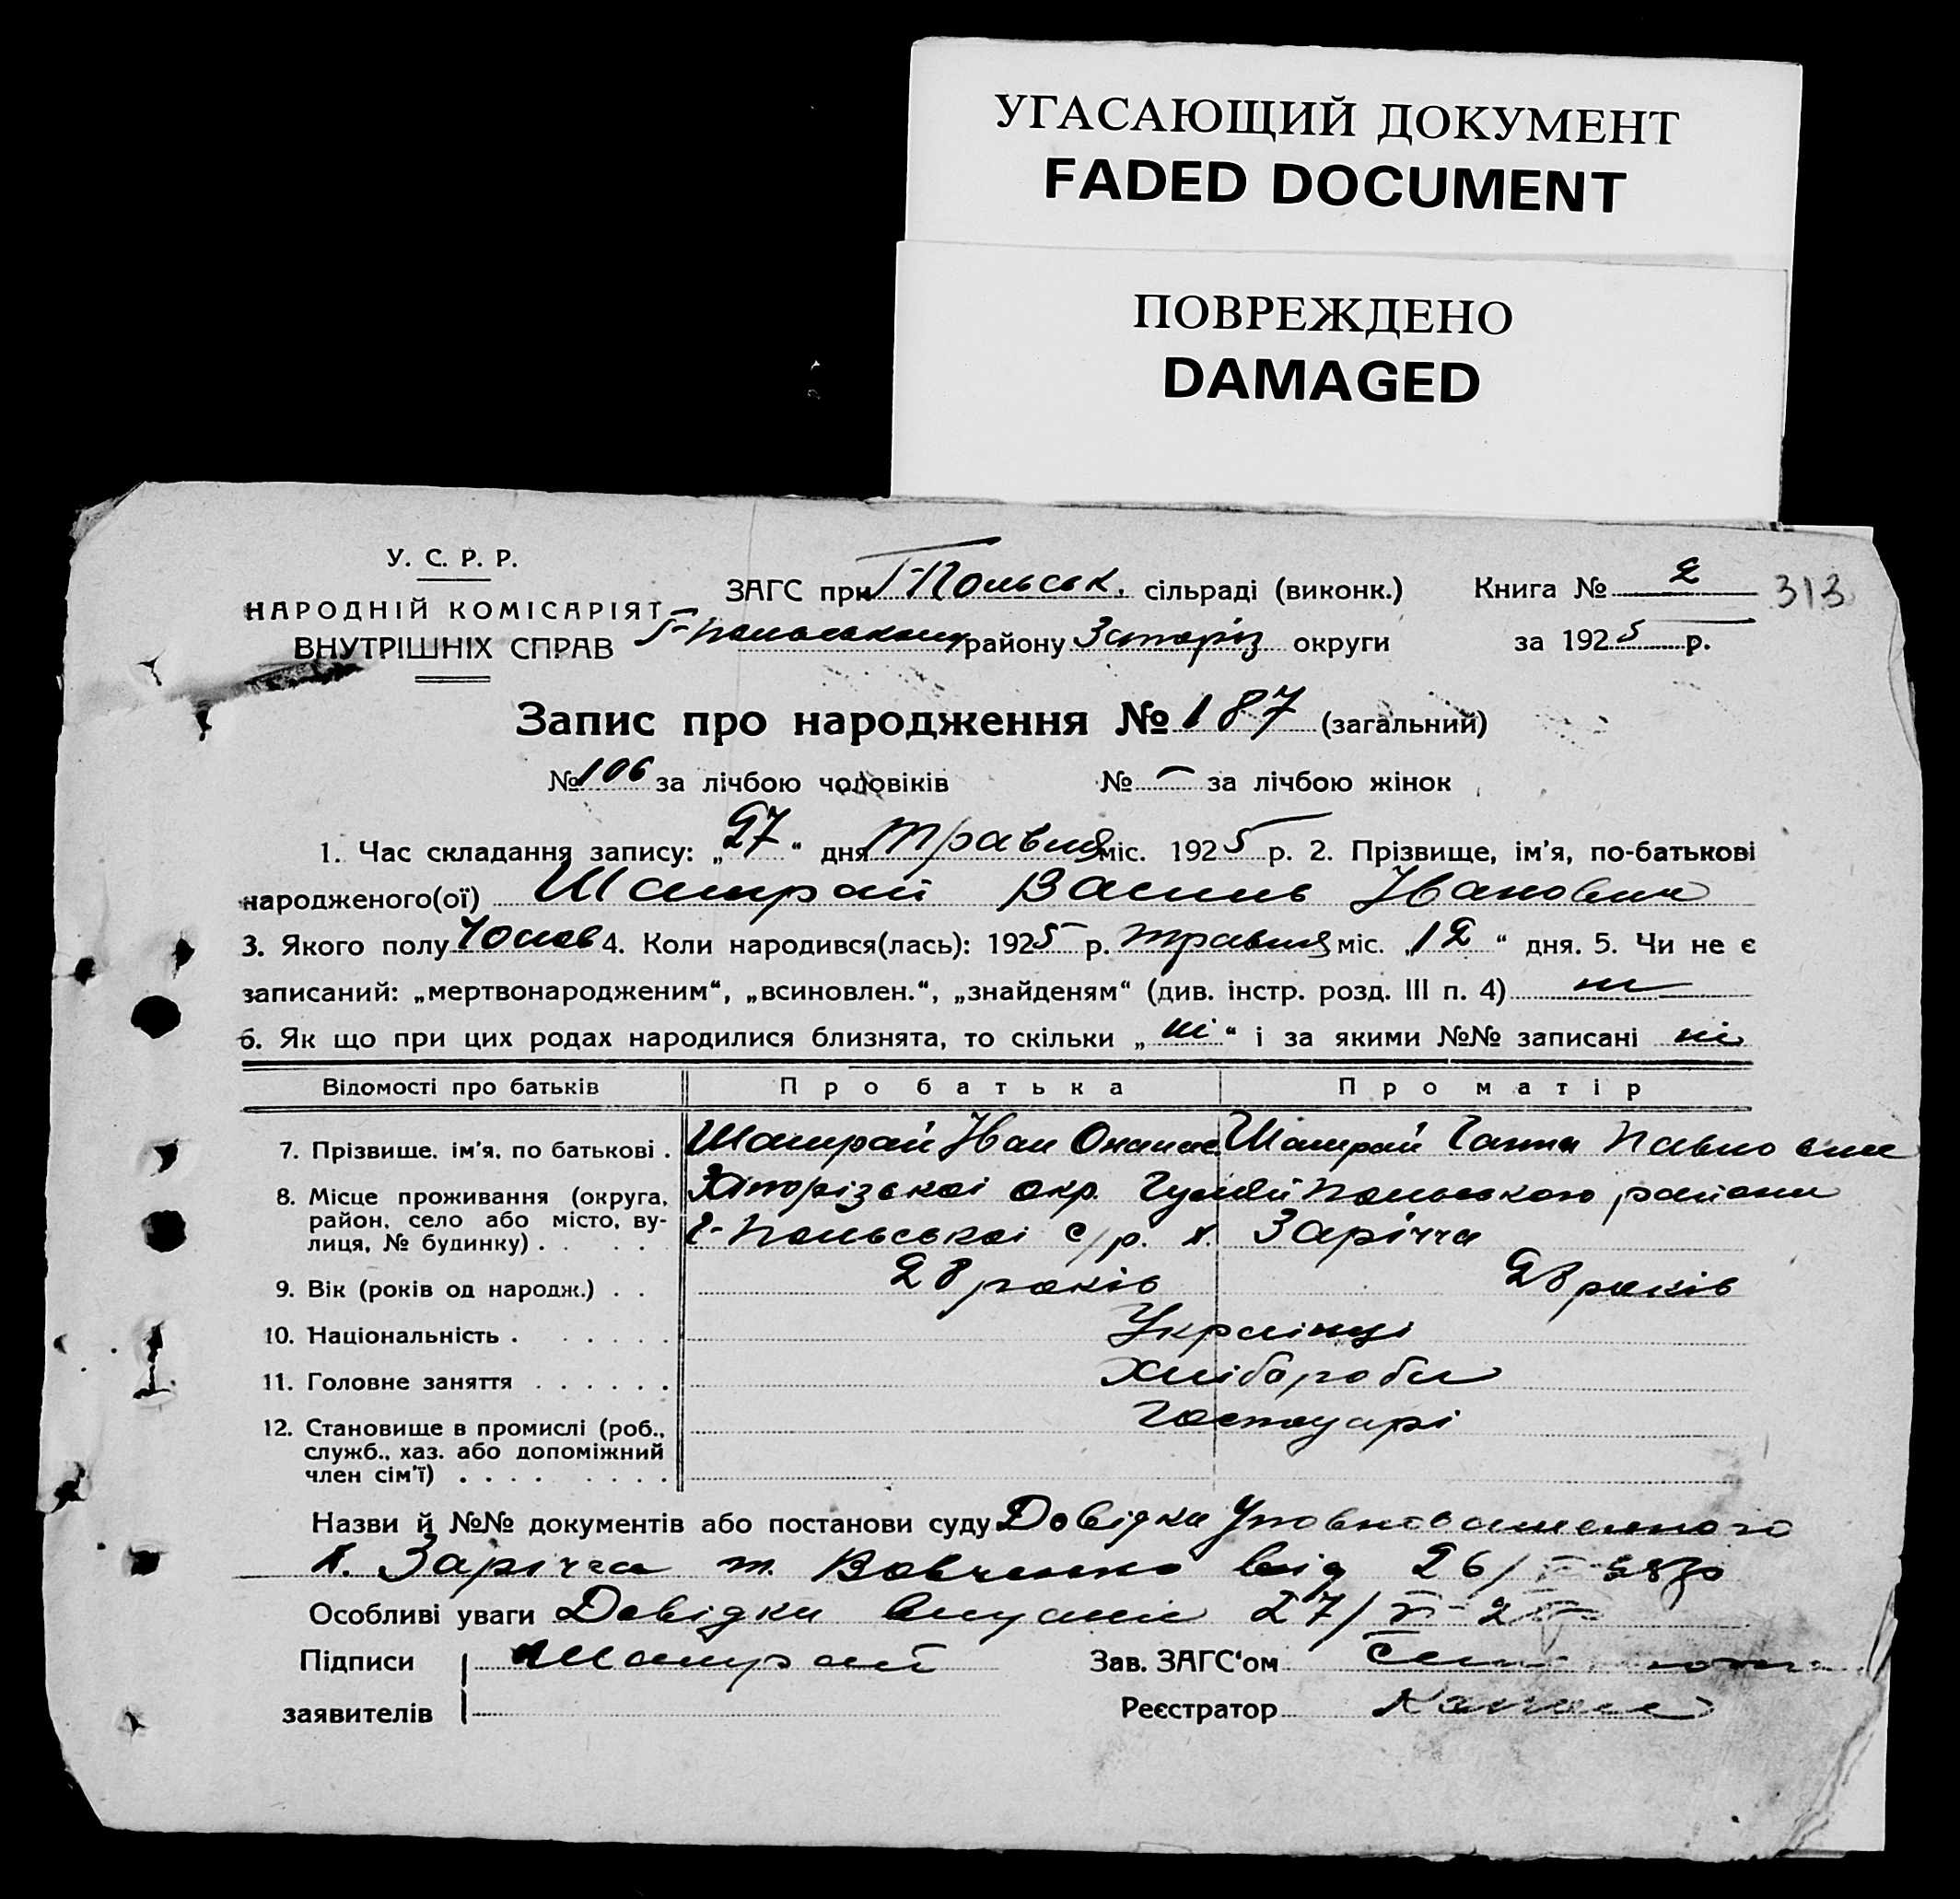 УГАСАЮЩИЙ ДОКУМЕНТ
FADED DOCUMENT
ПОВРЕЖДЕНО
DAMAGED
У. С. Р. Р.
НАРОДНІЙ КОМІСАРІЯТ
ВНУТРІШНІХ СПРАВ
ЗАГС при Г-Польськ. сільраді (виконк.) Книга № 2 313
Г-Польському району Запоріз округи за 1925 р.
Запис про народження № 187 (загальний)
№ 106 за лічбою чоловіків № — за лічбою жінок
1. Час складання запису: „27“ дня травня міс. 1925 р. 2. Прізвище, ім'я, по-батькові
народженого(ої) Шамрай Василь Іванович
3. Якого полу Чолов 4. Коли народився(лась): 1925 р. травня міс. „12“ дня. 5. Чи не є
записаний: „мертвонародженим“, „всиновлен.“, „знайденям“ (див. інстр. розд. III п. 4) ні
6. Як що при цих родах народилися близнята, то скільки „ні“ і за якими №№ записані ні
Відомості про батьків Про батька Про матір
7. Прізвище, ім'я, по батькові . Шамрай Іван Опанас Шамрай Ганна Павловна
8. Місце проживання (округа, район, село або місто, вулиця, № будинку) . . . . Запорізької окр. Гуляйпольського району
Г-Польської с/р. х. Зарічча
9. Вік (років од народж.) . . 28 років 28 років
10. Національність . . . . . . Українці
11. Головне заняття . . . . . . Хлібороби
12. Становище в промислі (роб., служб., хаз. або допоміжний член сім'ї) . . . . . . . . Господарі
Назви й №№ документів або постанови суду Довідка Уповноваженого
х. Зарічча т. Вовченко від 26/
Особливі уваги Довідка видана 27/
Підписи Шамрай Зав. ЗАГС'ом
заявителів Реєстратор